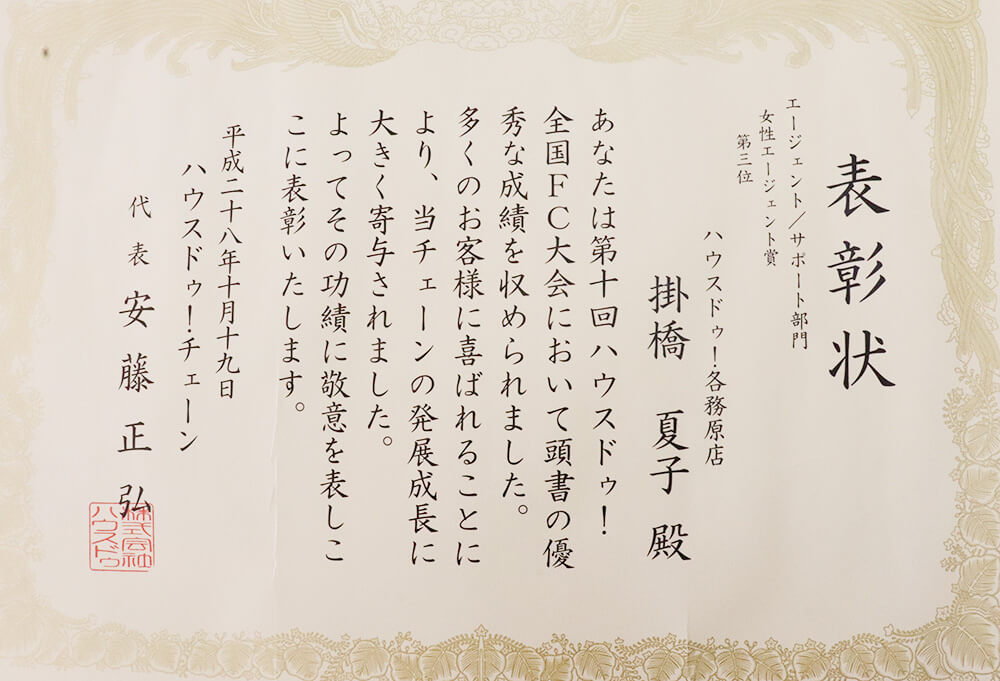 表彰状
エージェント／サポート部門
女性エージェント賞
第三位
ハウスドゥ！各務原店
掛橋 夏子 殿
あなたは第十回ハウスドゥ！
全国ＦＣ大会において頭書の優
秀な成績を収められました。
多くのお客様に喜ばれることに
より、当チェーンの発展成長に
大きく寄与されました。
よってその功績に敬意を表しこ
こに表彰いたします。
平成二十八年十月十九日
ハウスドゥ！チェーン
代表 安藤正弘
株式会社
ハウスドゥ